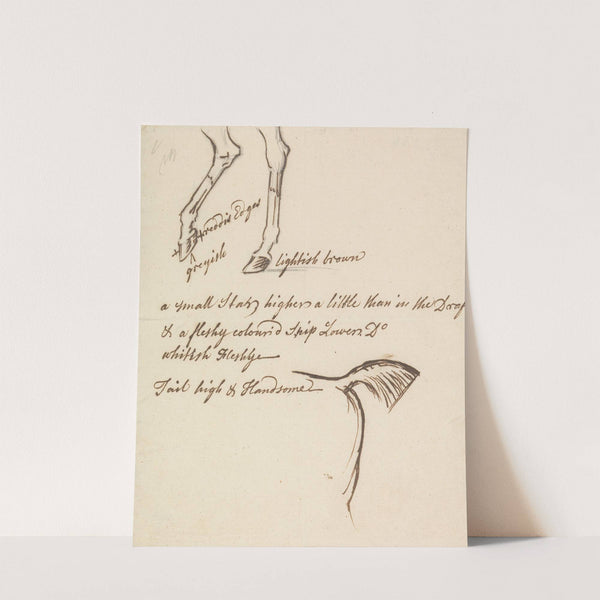 reddis Edges
greyish
lightish brown
a small Star higher a little than in the Draf
& a fleshy colour'd Snip Lower Do
whitish
Tail high & Handsome